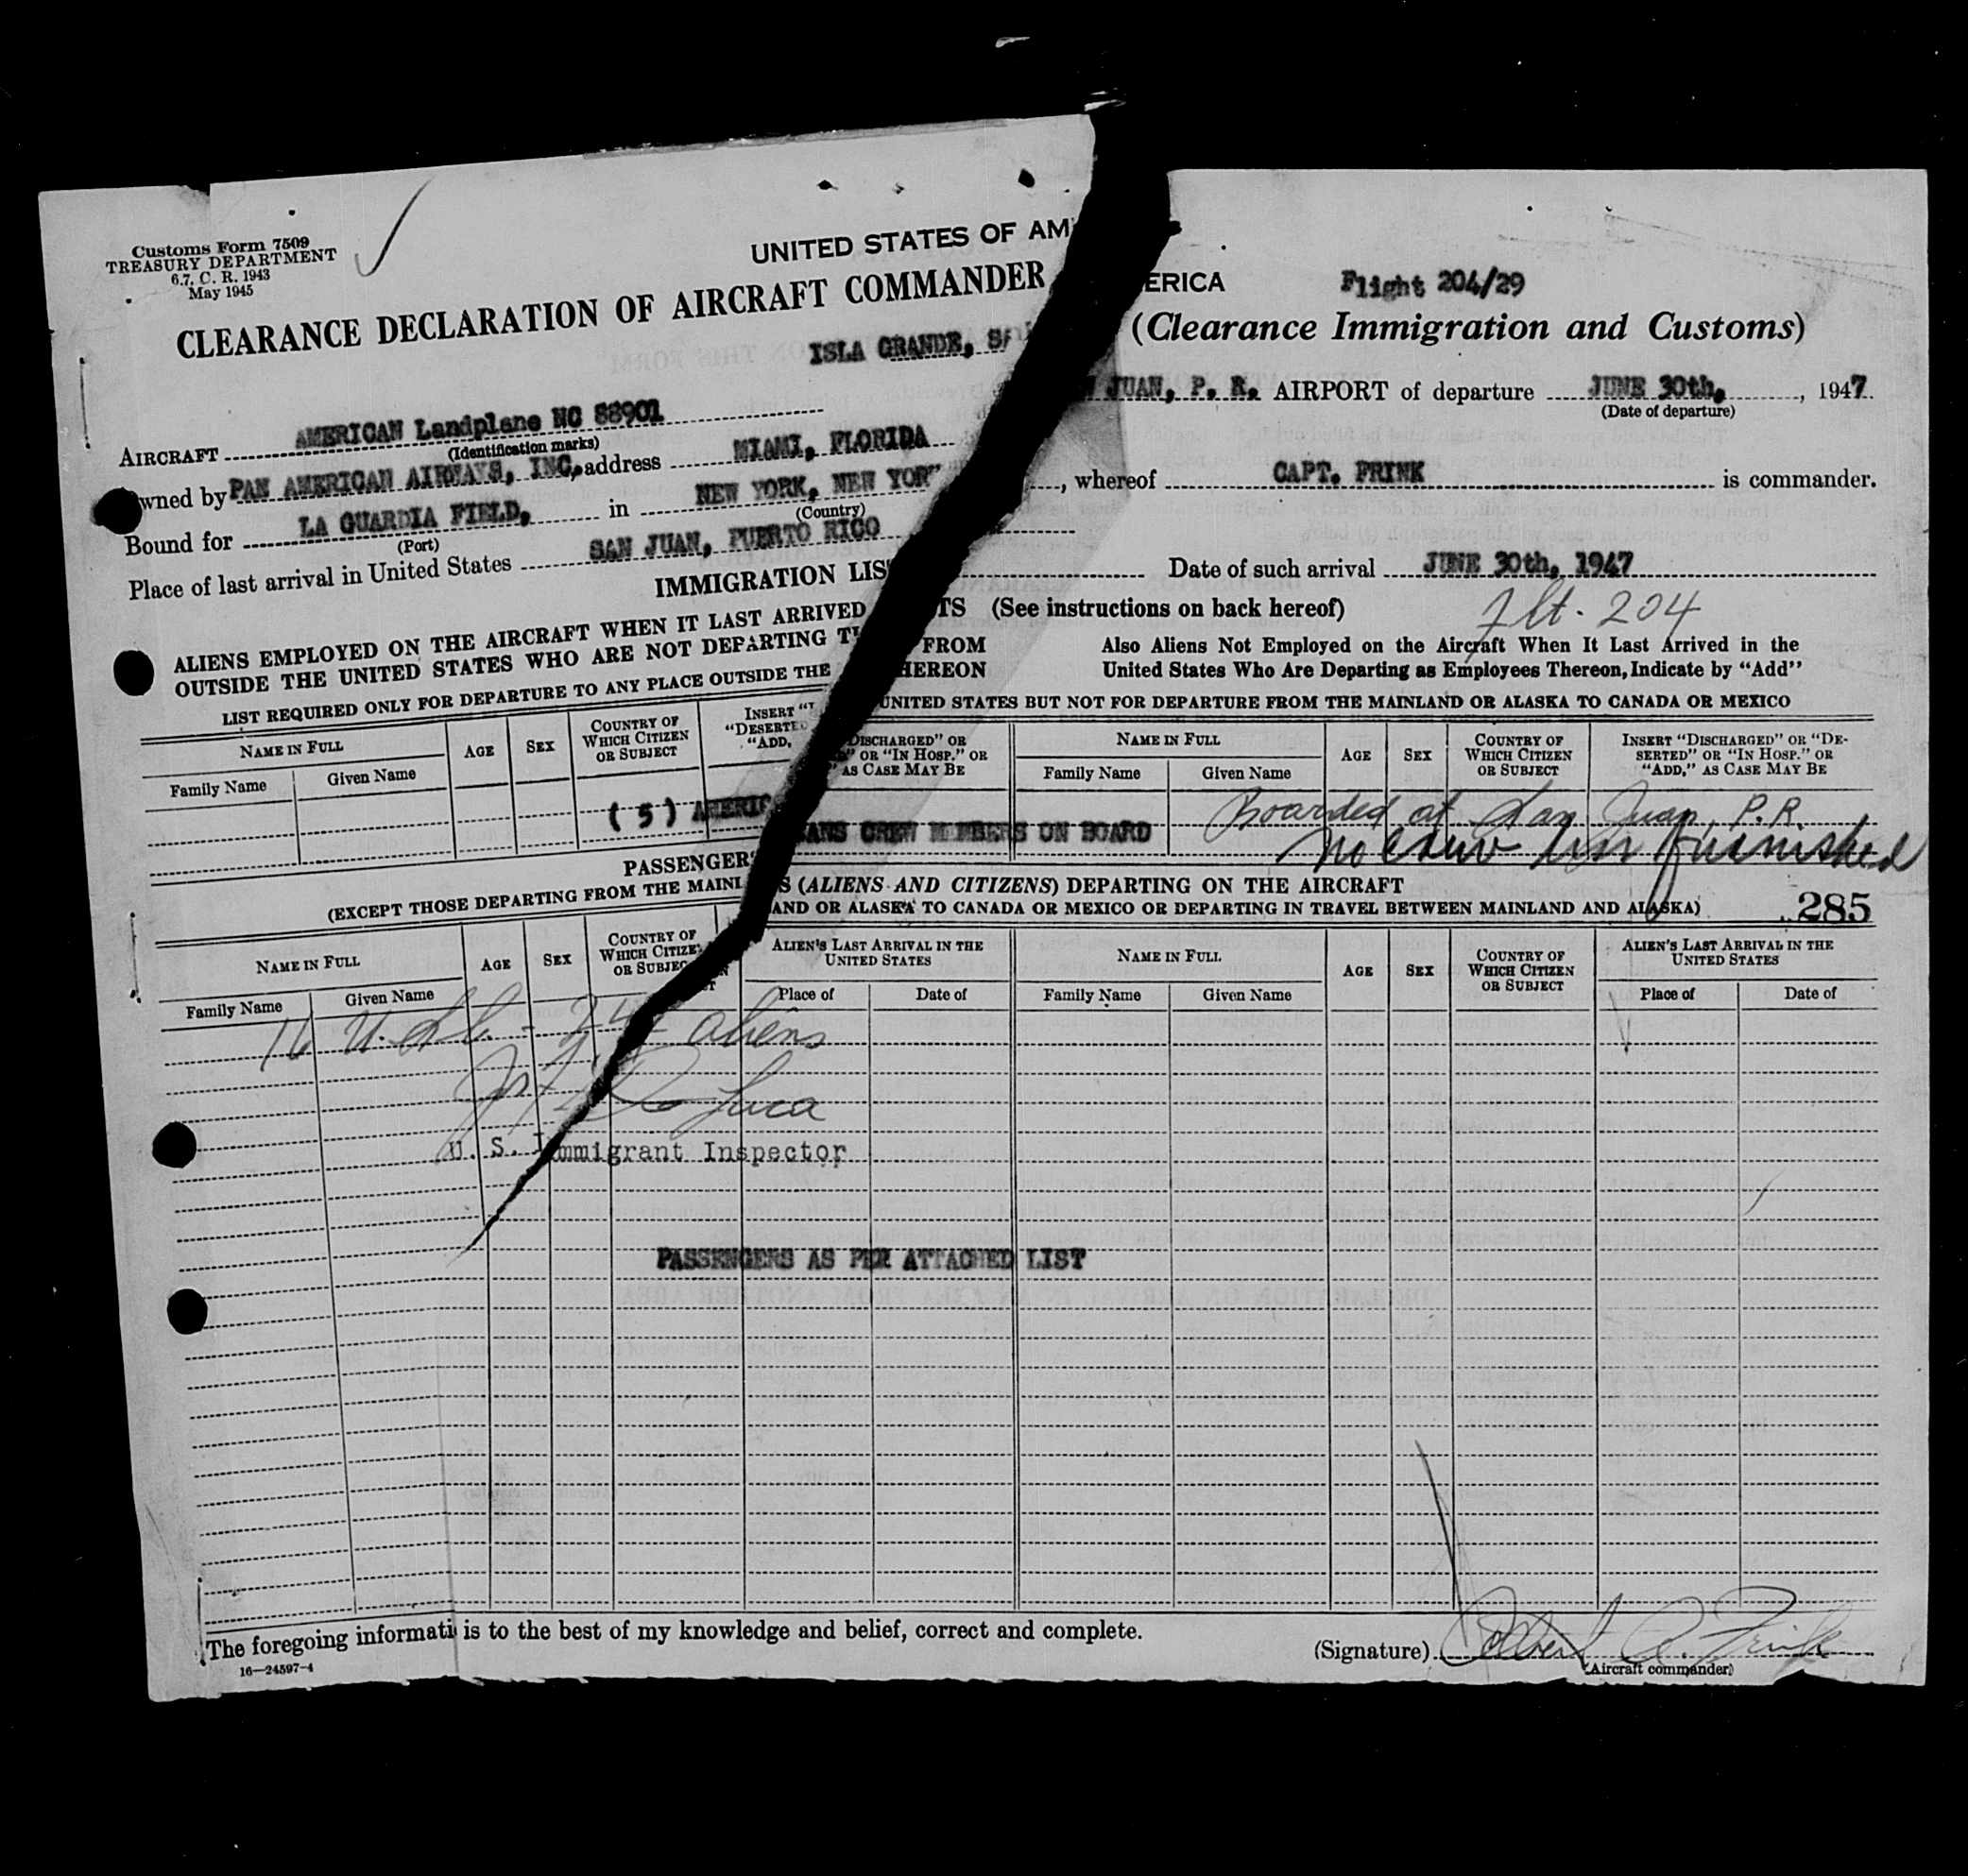 Customs Form 7509
TREASURY DEPARTMENT
6.7, C. R. 1943
May 1945
UNITED STATES OF AMERICA
Flight 204/29
CLEARANCE DECLARATION OF AIRCRAFT COMMANDER (Clearance Immigration and Customs)
ISLA GRANDE, SAN JUAN, P. R. AIRPORT of departure JUNE 30th, , 1947
(Date of departure)
AIRCRAFT AMERICAN Landplane NC 88901
(Identification marks)
Owned by PAN AMERICAN AIRWAYS, INC, address MIAMI, FLORIDA , whereof CAPT. FRINK is commander.
Bound for LA GUARDIA FIELD, in NEW YORK, NEW YORK
(Port) (Country)
Place of last arrival in United States SAN JUAN, PUERTO RICO Date of such arrival JUNE 30th, 1947
IMMIGRATION LISTS (See instructions on back hereof)
Flt. 204
ALIENS EMPLOYED ON THE AIRCRAFT WHEN IT LAST ARRIVED FROM
OUTSIDE THE UNITED STATES WHO ARE NOT DEPARTING THEREON
Also Aliens Not Employed on the Aircraft When It Last Arrived in the
United States Who Are Departing as Employees Thereon, Indicate by "Add"
LIST REQUIRED ONLY FOR DEPARTURE TO ANY PLACE OUTSIDE THE UNITED STATES BUT NOT FOR DEPARTURE FROM THE MAINLAND OR ALASKA TO CANADA OR MEXICO
NAME IN FULL
Family Name Given Name
AGE
SEX
COUNTRY OF
WHICH CITIZEN
OR SUBJECT
INSERT "DISCHARGED" OR
"DESERTED" OR "IN HOSP." OR
"ADD," AS CASE MAY BE
NAME IN FULL
Family Name Given Name
AGE
SEX
COUNTRY OF
WHICH CITIZEN
OR SUBJECT
INSERT "DISCHARGED" OR "DE-
SERTED" OR "IN HOSP." OR
"ADD," AS CASE MAY BE
Boarded at San Juan, P.R.
( 5 ) AMERICANS CREW MEMBERS ON BOARD
No crew list furnished
PASSENGERS (ALIENS AND CITIZENS) DEPARTING ON THE AIRCRAFT
(EXCEPT THOSE DEPARTING FROM THE MAINLAND OR ALASKA TO CANADA OR MEXICO OR DEPARTING IN TRAVEL BETWEEN MAINLAND AND ALASKA)
285
NAME IN FULL
Family Name Given Name
AGE
SEX
COUNTRY OF
WHICH CITIZEN
OR SUBJECT
ALIEN'S LAST ARRIVAL IN THE
UNITED STATES
Place of Date of
NAME IN FULL
Family Name Given Name
AGE
SEX
COUNTRY OF
WHICH CITIZEN
OR SUBJECT
ALIEN'S LAST ARRIVAL IN THE
UNITED STATES
Place of Date of
16 U.S.C. - 24 aliens
De Luca
U. S. Immigrant Inspector
PASSENGERS AS PER ATTACHED LIST
The foregoing informati is to the best of my knowledge and belief, correct and complete.
16—24597-4
(Signature) Robert A. Frink
(Aircraft commander)